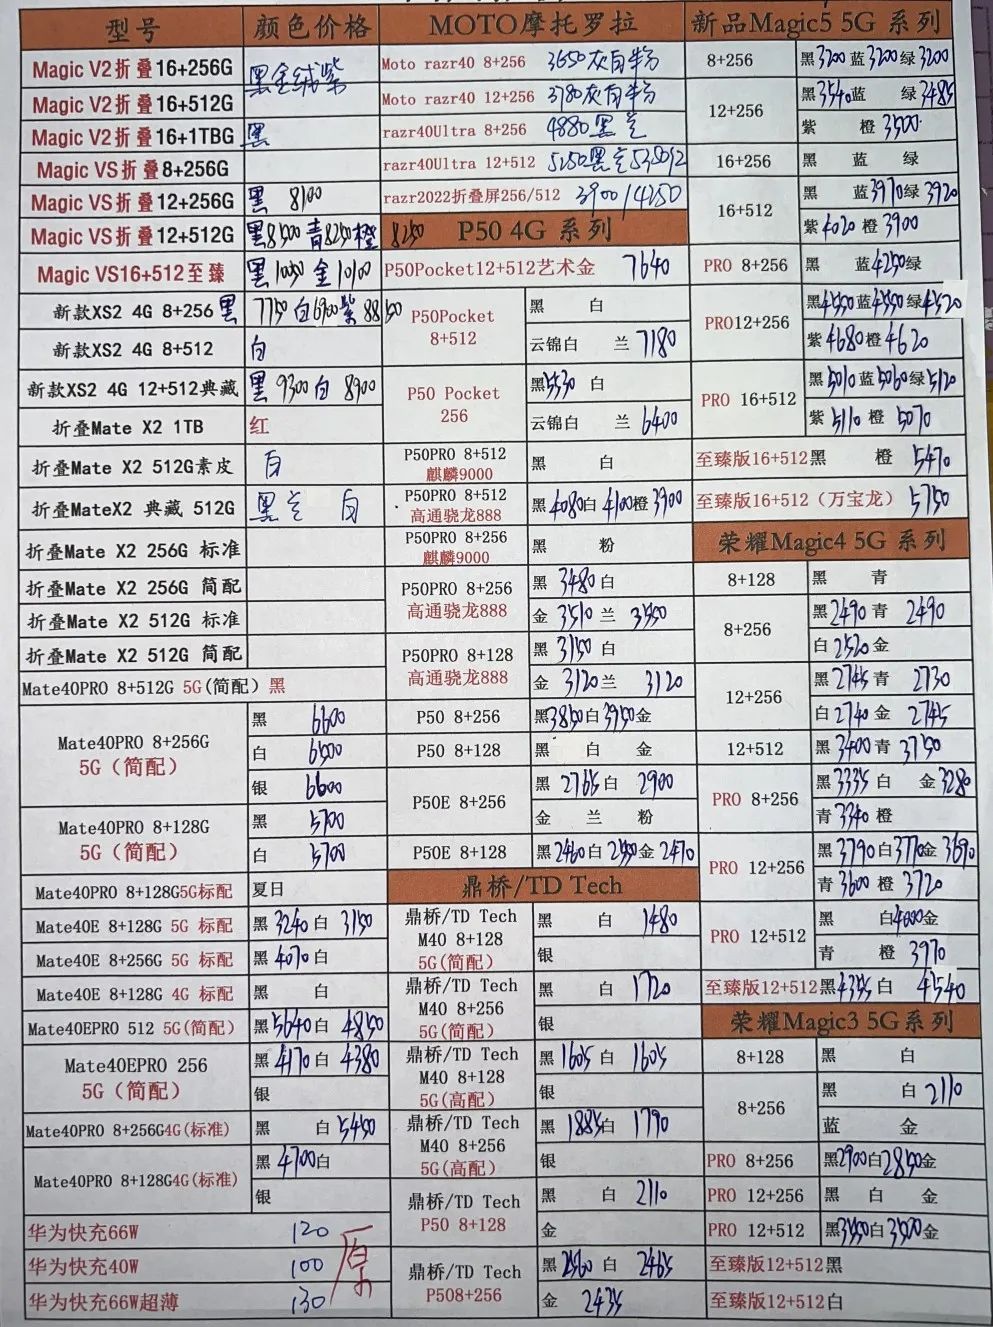 型号 颜色价格
Magic V2折叠16+256G 黑金绒紫
Magic V2折叠16+512G
Magic V2折叠16+1TBG 黑
Magic VS折叠8+256G
Magic VS折叠12+256G 黑 8100
Magic VS折叠12+512G 黑8500 青8250橙 8250
Magic VS16+512至臻 黑 金10100
新款XS2 4G 8+256 黑 7750 白6900紫8850
新款XS2 4G 8+512 白
新款XS2 4G 12+512典藏 黑 9300 白 8900
折叠Mate X2 1TB 红
折叠Mate X2 512G素皮 白
折叠MateX2 典藏 512G 黑 兰 白
折叠Mate X2 256G 标准
折叠Mate X2 256G 简配
折叠Mate X2 512G 标准
折叠Mate X2 512G 简配
Mate40PRO 8+512G 5G(简配) 黑
Mate40PRO 8+256G
5G（简配）
黑 6600
白 6500
银 6600
Mate40PRO 8+128G
5G（简配）
黑 5700
白 5700
Mate40PRO 8+128G5G标配 夏日
Mate40E 8+128G 5G 标配 黑 3240 白 3150
Mate40E 8+256G 5G 标配 黑 4070 白
Mate40E 8+128G 4G 标配 黑 白
Mate40EPRO 512 5G(简配) 黑5640白 4850
Mate40EPRO 256
5G（简配）
黑 4170 白 4380
银
Mate40PRO 8+256G4G(标准) 黑 白5450
Mate40PRO 8+128G4G(标准)
黑 4700白
银
华为快充66W 120
华为快充40W 100
华为快充66W超薄 130
原
MOTO摩托罗拉
Moto razr40 8+256 3650灰白粉
Moto razr40 12+256 3780灰白粉
razr40Ultra 8+256 4880 黑 兰
razr40Ultra 12+512 5250黑兰
razr2022折叠屏256/512 3900/4250
P50 4G 系列
P50Pocket12+512艺术金 7640
P50Pocket
8+512
黑 白
云锦白 兰 7180
P50 Pocket
256
黑5530 白
云锦白 兰 6400
P50PRO 8+512
麒麟9000
黑 白
P50PRO 8+512
高通骁龙888
黑4080白 4100橙3900
P50PRO 8+256
麒麟9000
黑 粉
P50PRO 8+256
高通骁龙888
黑 3480白
金 3510 兰 3550
P50PRO 8+128
高通骁龙888
黑 3150 白
金 3120兰 3120
P50 8+256 黑3850白3950金
P50 8+128 黑 白 金
P50E 8+256
黑 2765 白 2900
金 兰 粉
P50E 8+128 黑2460白 金 2470
鼎桥/TD Tech
鼎桥/TD Tech
M40 8+128
5G(简配)
黑 白 1480
银
鼎桥/TD Tech
M40 8+256
5G(简配)
黑 白 1720
银
鼎桥/TD Tech
M40 8+128
5G(高配)
黑 1605 白 1605
银
鼎桥/TD Tech
M40 8+256
5G(高配)
黑 1885白 1790
银
鼎桥/TD Tech
P50 8+128
黑 白 2110
金
鼎桥/TD Tech
P508+256
黑 2560 白 2465
金 2435
新品Magic5 5G 系列
8+256 黑3200 蓝3200绿3200
12+256
黑3540蓝 绿 3485
紫 橙 3500
16+256 黑 蓝 绿
16+512
黑 蓝3970绿 3920
紫4020 橙 3900
PRO 8+256 黑 蓝4250绿
PRO12+256
黑4550蓝4550绿4520
紫4680橙4620
PRO 16+512
黑5010蓝5060绿5120
紫 5110 橙 5070
至臻版16+512黑 橙 5470
至臻版16+512（万宝龙）5750
荣耀Magic4 5G 系列
8+128 黑 青
8+256
黑2490青 2490
白2520金
12+256
黑2745青 2730
白2740 金 2745
12+512 黑3400青 3750
PRO 8+256
黑3335 白 金3280
青3340橙
PRO 12+256
黑3790白3770金3690
青3600 橙 3720
PRO 12+512
黑 白4000金
青 橙 3970
至臻版12+512黑4355白 4540
荣耀Magic3 5G系列
8+128 黑 白
8+256
黑 白2110
蓝 金
PRO 8+256 黑2900白2850金
PRO 12+256 黑 白 金
PRO 12+512 黑3550白3500金
至臻版12+512黑
至臻版12+512白